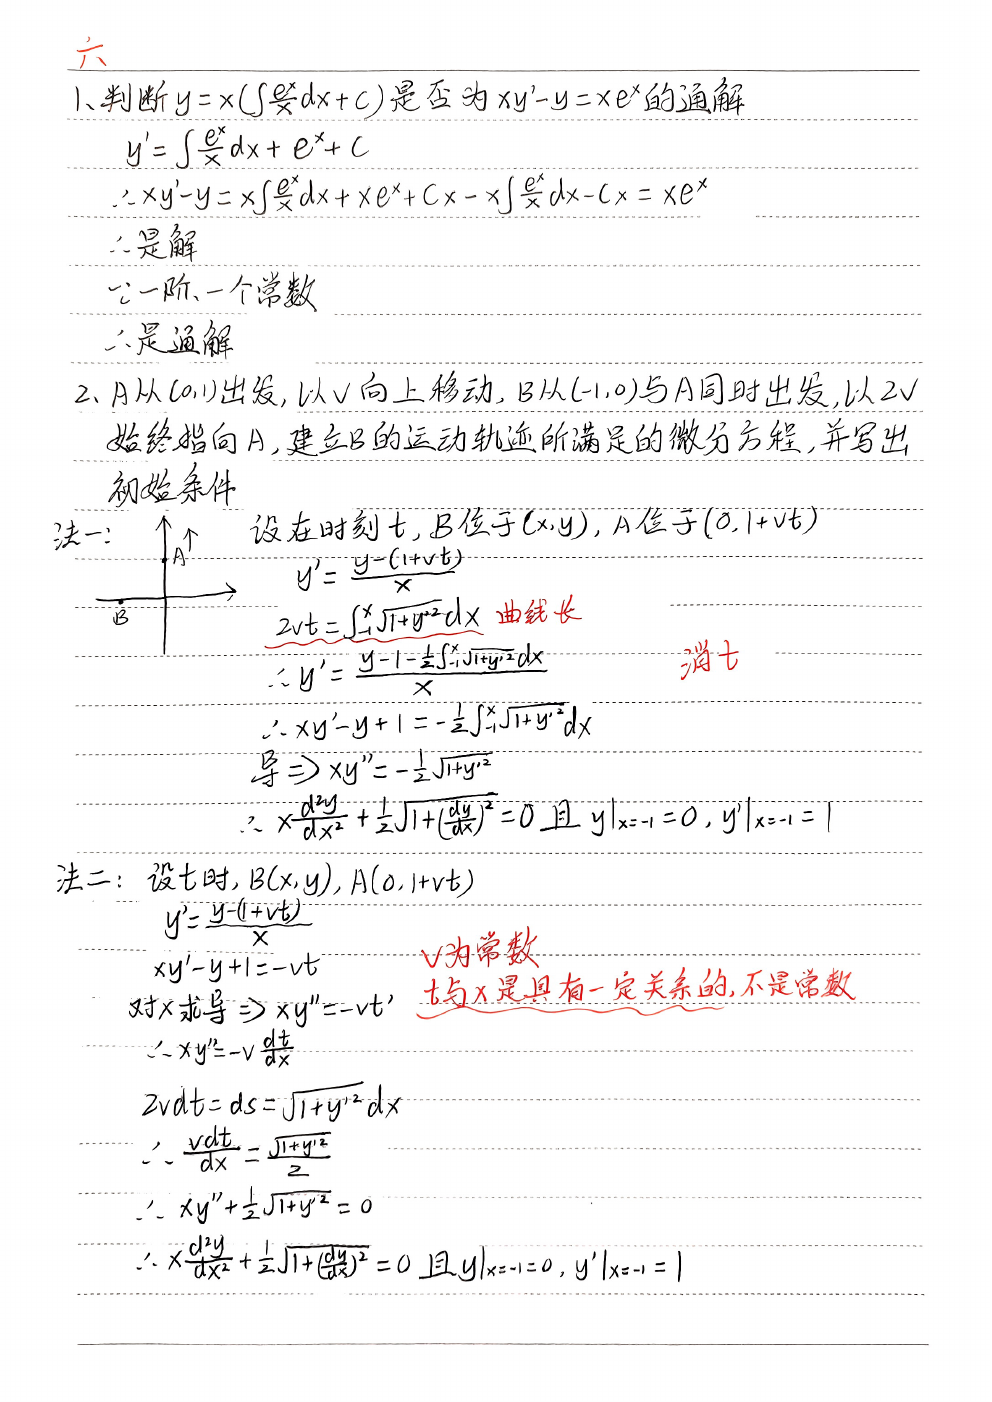 六
1、判断y=x(∫e^x/x dx+C)是否为xy'-y=xe^x的通解
y'=∫e^x/x dx+e^x+C
∴xy'-y=x∫e^x/x dx+xe^x+Cx-x∫e^x/x dx-Cx=xe^x
∴是解
∵一阶、一个常数
∴是通解
2、A从(0,1)出发,以V向上移动,B从(-1,0)与A同时出发,以2V
始终指向A,建立B的运动轨迹所满足的微分方程,并写出
初始条件
法一:
A
B
设在时刻t,B位于(x,y),A位于(0,1+vt)
y'=(y-(1+vt))/x
2vt=∫_{-1}^{x}√(1+y'^2)dx 曲线长
∴y'=(y-1-½∫_{-1}^{x}√(1+y'^2)dx)/x 消t
∴xy'-y+1=-½∫_{-1}^{x}√(1+y'^2)dx
导⇒xy''=-½√(1+y'^2)
∴x d²y/dx²+½√(1+(dy/dx)²)=0且y|x=-1=0,y'|x=-1=1
法二:设t时,B(x,y),A(0,1+vt)
y'=(y-(1+vt))/x
xy'-y+1=-vt
V为常数
对x求导⇒xy''=-vt'
t与x是具有一定关系的,不是常数
∴xy''=-v dt/dx
2vdt=ds=√(1+y'^2)dx
∴vdt/dx=√(1+y'^2)/2
∴xy''+½√(1+y'^2)=0
∴x d²y/dx²+½√(1+(dy/dx)²)=0且y|x=-1=0,y'|x=-1=1